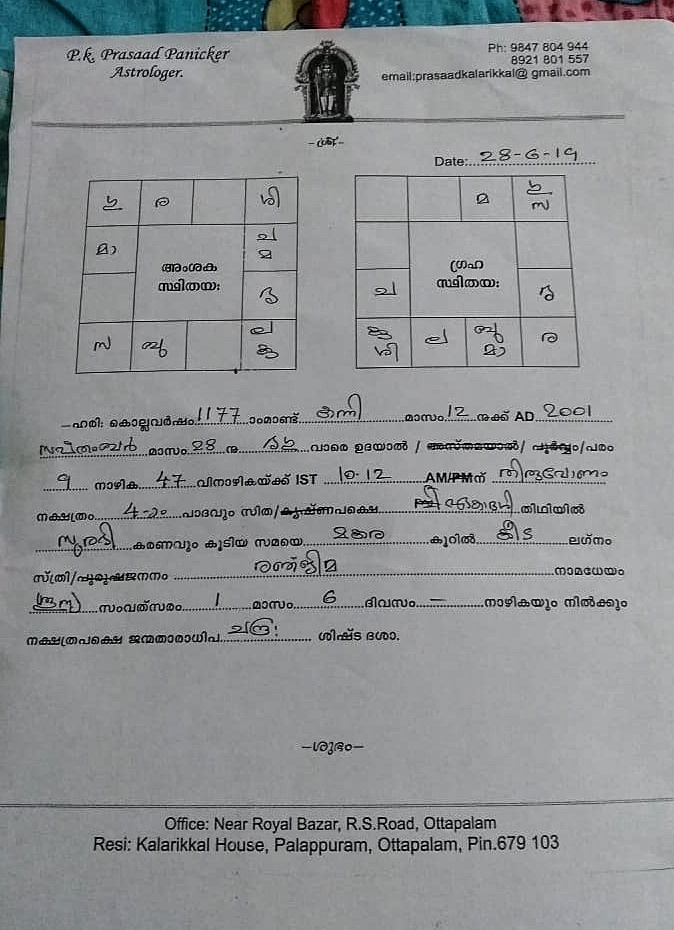 P.k. Prasaad Panicker
Astrologer.
Ph: 9847 804 944
8921 801 557
email:prasaadkalarikkal@ gmail.com
Date: 28-6-19
ര ശി
മ
മാ ച
മ
അംശക
സ്ഥിതയഃ
സ ബു ല
ഗ്രഹ
സ്ഥിതയഃ
ച
ശി ല ബു
മാ ര
–ഹരി: കൊല്ലവർഷം 1177 ാംമാണ്ട് കന്നി മാസം 12 നുക്ക് AD 2001
സപ്തംബർ മാസം 28 നു വാരെ ഉദയാൽ / അസ്തമയാൽ/ പൂർവ്വം/പരം
9 നാഴിക 47 വിനാഴികയ്ക്ക് IST 10-12 AM/PMന് തിരുവോണം
നക്ഷത്രം 4-ാം പാദവും സിത/കൃഷ്ണപക്ഷെ ഏകാദശി തിഥിയിൽ
സുരഭി കരണവും കൂടിയ സമയെ മകര കൂറിൽ കീട ലഗ്നം
സ്ത്രി/പുരുഷജനനം രഞ്ജിമ നാമധേയം
സംവത്സരം 1 മാസം 6 ദിവസം – നാഴികയും നിൽക്കും
നക്ഷത്രപക്ഷെ ജന്മതാരാധിപ ചന്ദ്ര: ശിഷ്ട ദശാ.
–ശുഭം–
Office: Near Royal Bazar, R.S.Road, Ottapalam
Resi: Kalarikkal House, Palappuram, Ottapalam, Pin.679 103